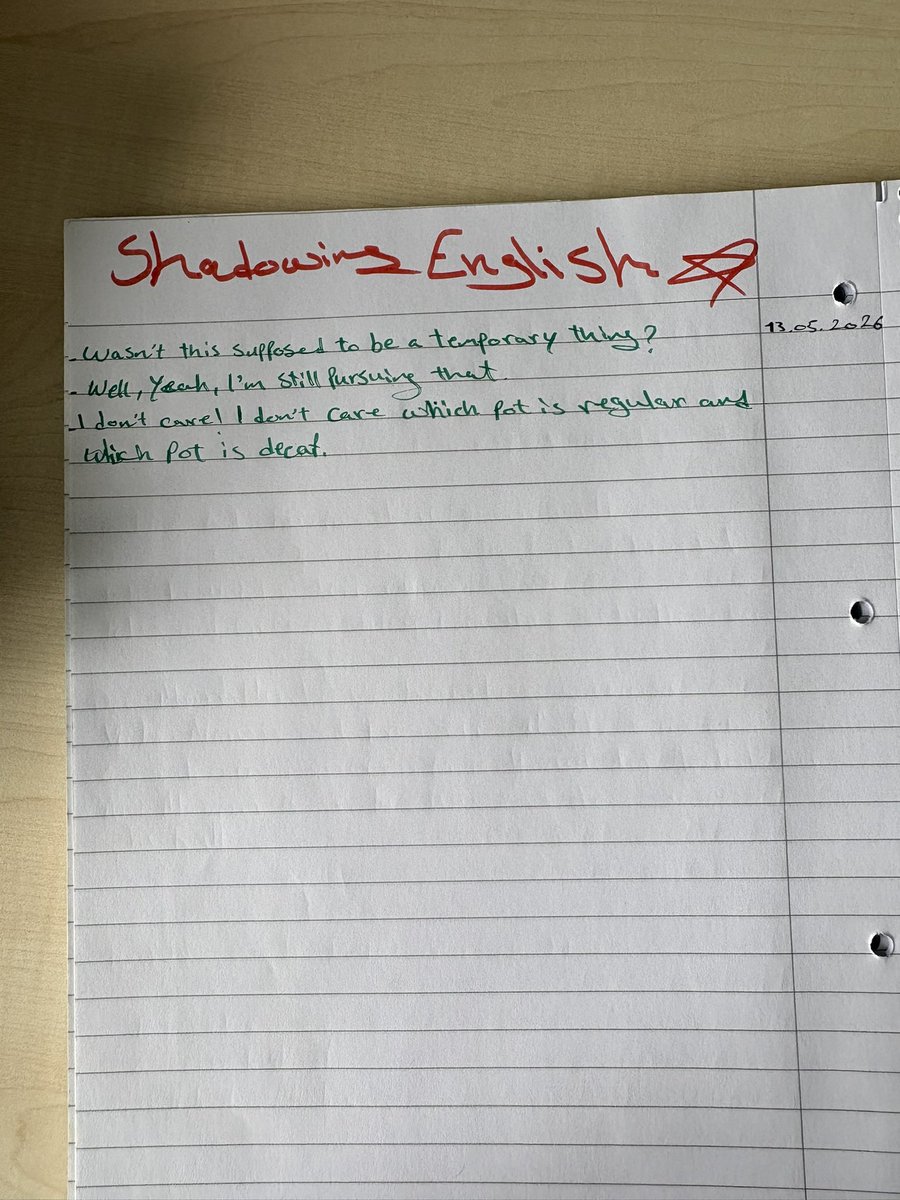 Shadowing English
13.05.2026
- Wasn't this supposed to be a temporary thing?
- Well, Yeah, I'm still pursuing that.
- I don't care! I don't care which pot is regular and
which pot is decaf.